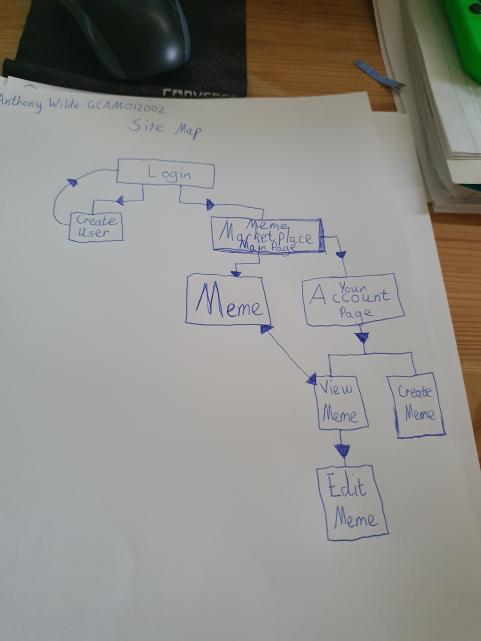 CONVERSE
Anthony Wilde GCAM012002
Site Map
Login
Create
User
Meme
Marketplace
Main Page
Meme
Your
Account
Page
View
Meme
Create
Meme
Edit
Meme